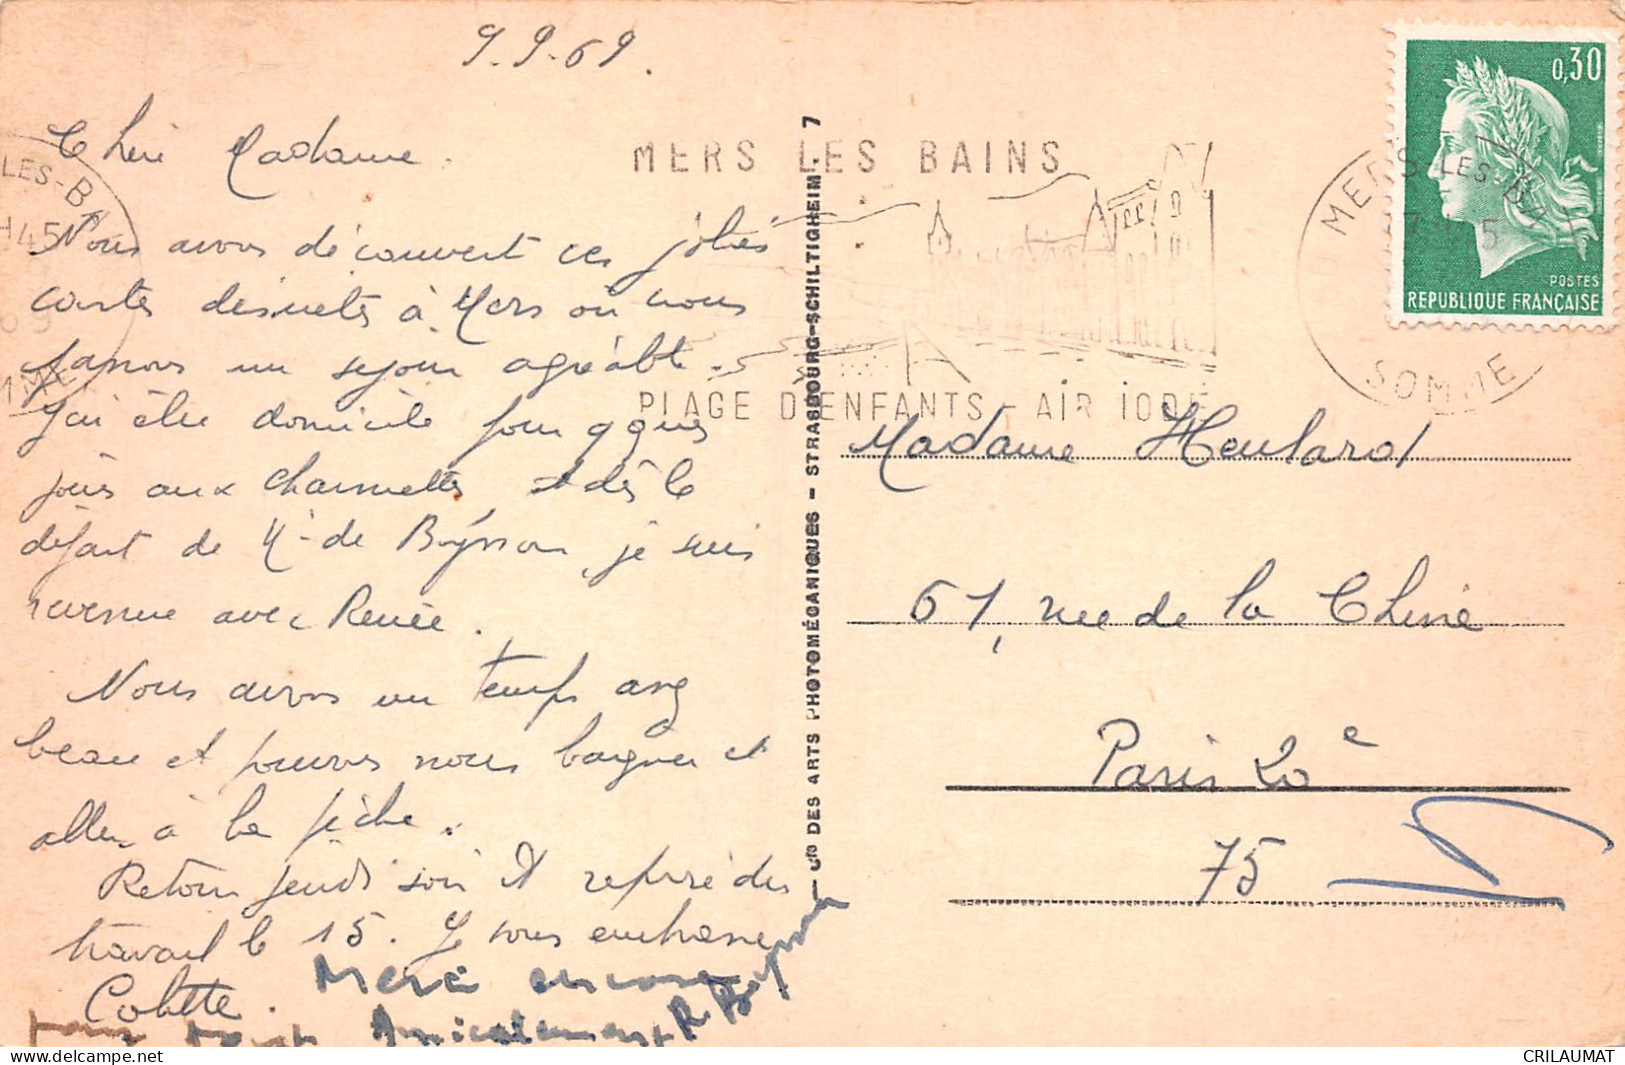 9.9.69.
Chère Madame.
Nous avons découvert ces jolies
cartes désuètes à Mers où nous
passons un séjour agréable.
J'ai élu domicile pour qques
jours aux Charmettes, et dès le
départ de M. de Buysson, je suis
revenue avec Renée.
Nous avons un temps assez
beau et pouvons nous baigner et
aller à la pêche.
Retour jeudi soir et reprise du
travail le 15. Je vous embrasse
Colette.
Merci encore
pour tout Amicalement R.
MERS LES BAINS
PLAGE D'ENFANTS - AIR IODÉ
LES-BA
H45
69
MME
Cie DES ARTS PHOTOMÉCANIQUES - STRASBOURG-SCHILTIGHEIM. 7
0,30
POSTES
REPUBLIQUE FRANÇAISE
MERS-LES-BA
SOMME
Madame Heulard
61, rue de la Chine
Paris 20e
75
CRILAUMAT